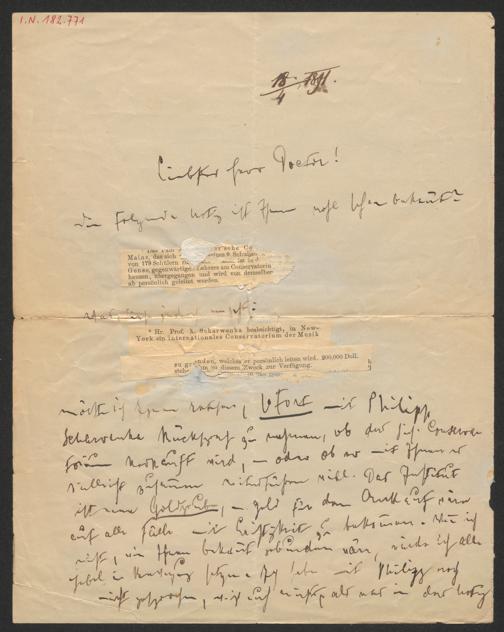 I.N. 182.771
18/4 1891.
Liebster Herr Doctor!
Die folgende Notiz ist Ihnen wohl schon bekannt?
Mainz, das sich
von 179 Schülern
Genss, gegenwärtiger Lehrer am Conservatorium
hausen, übergegangen und wird von demselben
ab persönlich geleitet werden.
* Hr. Prof. X. Scharwenka beabsichtigt, in New-
York ein internationales Conservatorium der Musik
zu gründen, welches er persönlich leiten wird. 200,000 Doll.
zu diesem Zweck zur Verfügung.
möchte ich Ihnen rathen, sofort mit Philipp
Scharwenka Rücksprache zu nehmen, ob das
verkauft wird, – oder ob er mit Ihnen es
vielleicht zusammen weiterführen will. Das Institut
ist eine Goldgrube, – Geld für den Ankauf wäre
auf alle Fälle mit Leichtigkeit zu bekommen. Wenn ich
nicht, wie Ihnen bekannt, gebunden wäre, würde ich alle
Hebel in Bewegung setzen. Ich habe mit Philipp noch
nicht gesprochen, weiss auch nicht mehr als was in der Notiz